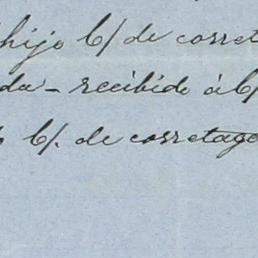 hijo C/ de corret
da - recibido á C/
C/. de corretage